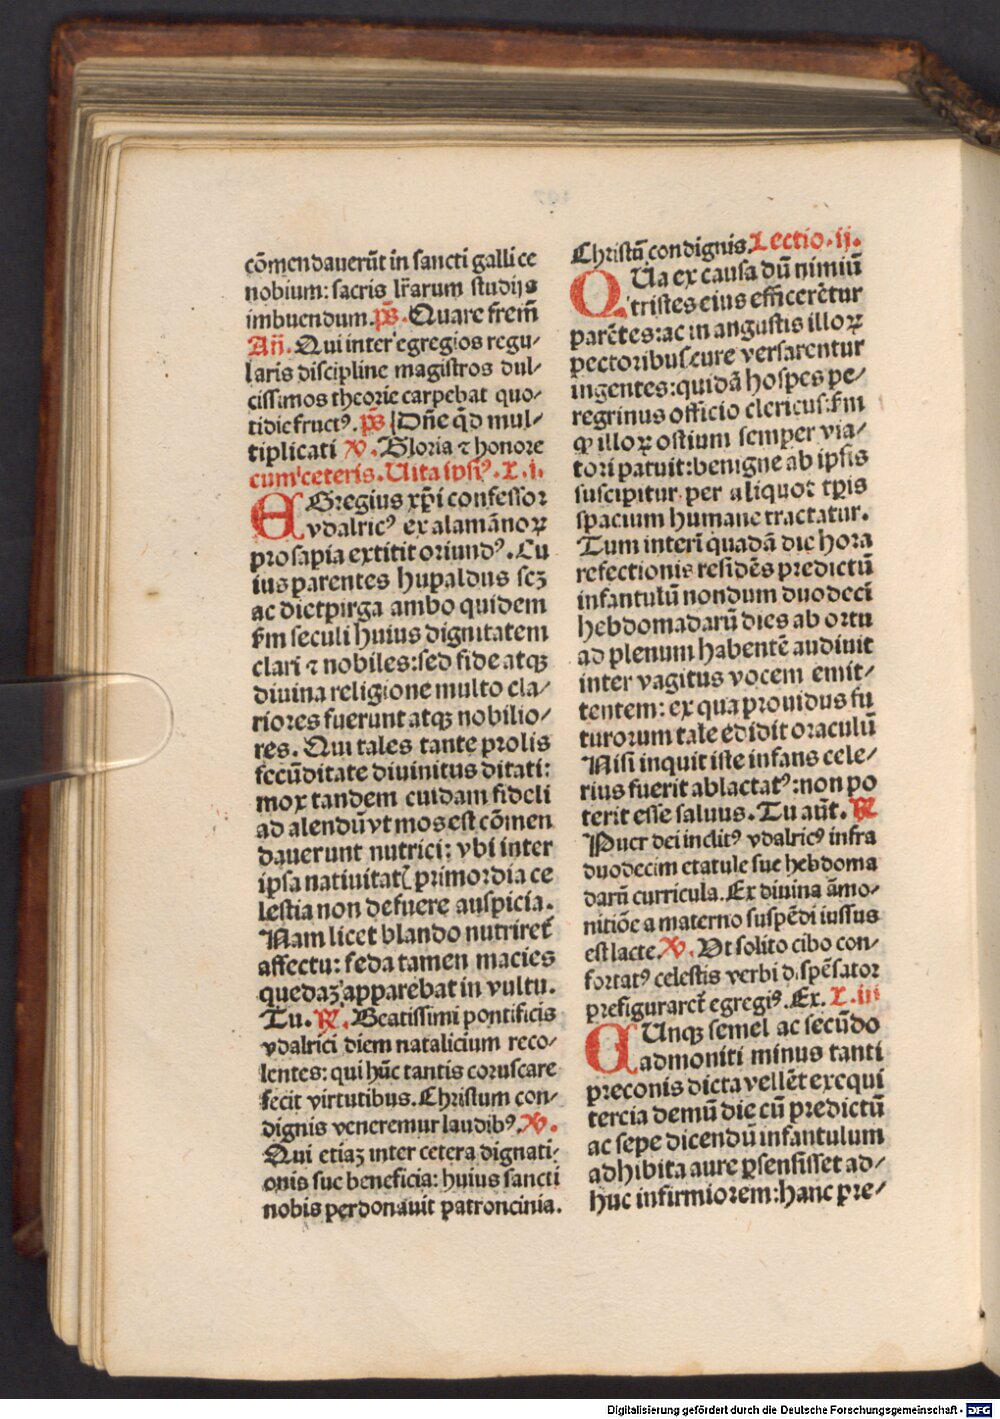 cōmendauerūt in sancti galli ce
nobium: sacris lr̄arum studijs
imbuendum. p̄s. Quare frem̄
An̄. Qui inter egregios regu⸗
laris discipline magistros dul⸗
cissimos theorie carpebat quo⸗
tidie fructꝰ. p̄s Dn̄e qͥd mul⸗
tiplicati ℣. Gloria ⁊ honore
cum ceteris. Uita ipsiꝰ. L. i.
EGregius xp̄i confessor
vdalricꝰ ex alamānoꝝ
prosapia extitit oriundꝰ. Cu
ius parentes hupaldus scꝫ
ac dietpirga ambo quidem
fm̄ seculi huius dignitatem
clari ⁊ nobiles: sed fide atqꝫ
diuina religione multo cla⸗
riores fuerunt atqꝫ nobilio⸗
res. Qui tales tante prolis
fecūditate diuinitus ditati:
mox tandem cuidam fideli
ad alendū vt mos est cōmen
dauerunt nutrici: vbi inter
ipsa natiuitatꝭ primordia ce
lestia non defuere auspicia.
Nam licet blando nutriret̄
affectu: feda tamen macies
quedaꝫ apparebat in vultu.
Tu. ℟. Beatissimi pontificis
vdalrici diem natalicium reco⸗
lentes: qui hūc tantis coruscare
fecit virtutibus. Christum con⸗
dignis veneremur laudibꝰ. ℣.
Qui etiaꝫ inter cetera dignati⸗
onis sue beneficia: huius sancti
nobis perdonauit patroncinia.
Christū condignis. Lectio. ij.
QUia ex causa dū nimiū
tristes eius efficerētur
parētes: ac in angustis illoꝝ
pectoribus cure versarentur
ingentes: quidā hospes pe⸗
regrinus officio clericus: fm̄
ꝙ illoꝝ ostium semper via⸗
tori patuit: benigne ab ipsis
suscipitur per aliquot tp̄is
spacium humane tractatur.
Tum interī quadā die hora
refectionis residēs predictū
infantulū nondum duodeci
hebdomadarū dies ab ortu
ad plenum habentē audiuit
inter vagitus vocem emit⸗
tentem: ex qua prouidus fu
turorum tale edidit oraculū
Nisi inquit iste infans cele⸗
rius fuerit ablactatꝰ: non po
terit esse saluus. Tu aūt. ℟
Puer dei inclitꝰ vdalricꝰ infra
duodecim etatule sue hebdoma
darū curricula. Ex diuina āmo⸗
nitiōe a materno suspēdi iussus
est lacte. ℣. Ut solito cibo con⸗
fortatꝰ celestis verbi dispēsator
prefiguraret̄ egregiꝰ. Ex. L. iii
CUnqꝫ semel ac secūdo
admoniti minus tanti
preconis dicta vellēt exequi
tercia demū die cū predictū
ac sepe dicendū infantulum
adhibita aure ꝑsensisset ad⸗
huc infirmiorem: hanc pre⸗
Digitalisierung gefördert durch die Deutsche Forschungsgemeinschaft - DFG